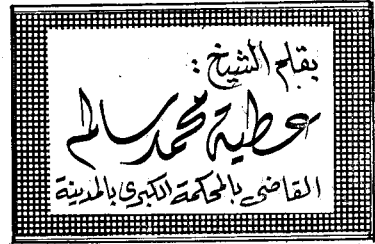 بقلم الشيخ :
عطية محمد سالم
القاضي بالمحكمة الكبرى بالمدينة